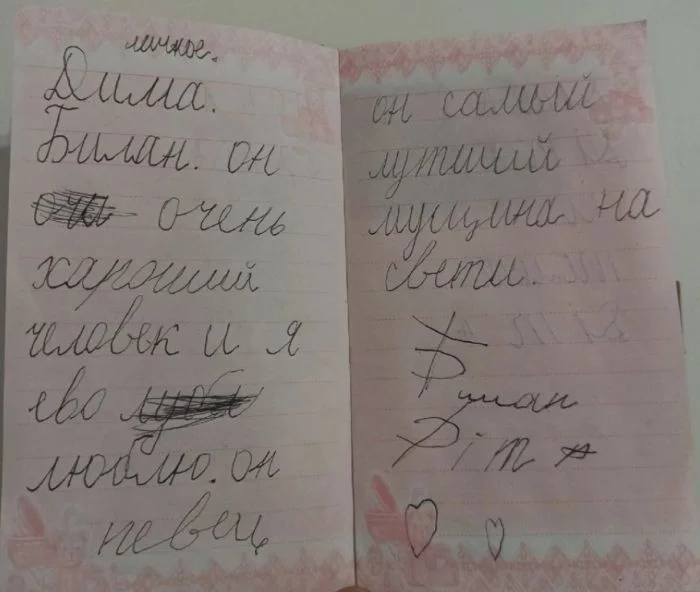 личное.
Дима.
Билан. он
очень
харошиий
человек и я
ево
люблю. он
певец
он самый
лутший
мущина на
свети.
Билан